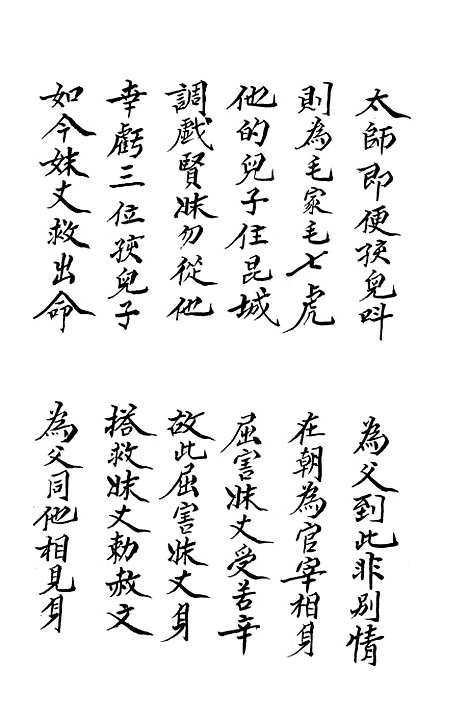 太師即便孩兒呌
為父到此非别情
則為毛家毛七虎
在朝為官宰相身
他的兒子住昆城
屈害妹丈受苦辛
調戲賢妹勿從他
故此屈害妹丈身
幸虧三位孩兒子
搭救妹丈勅赦文
如今妹丈救出命
為父同他相見身